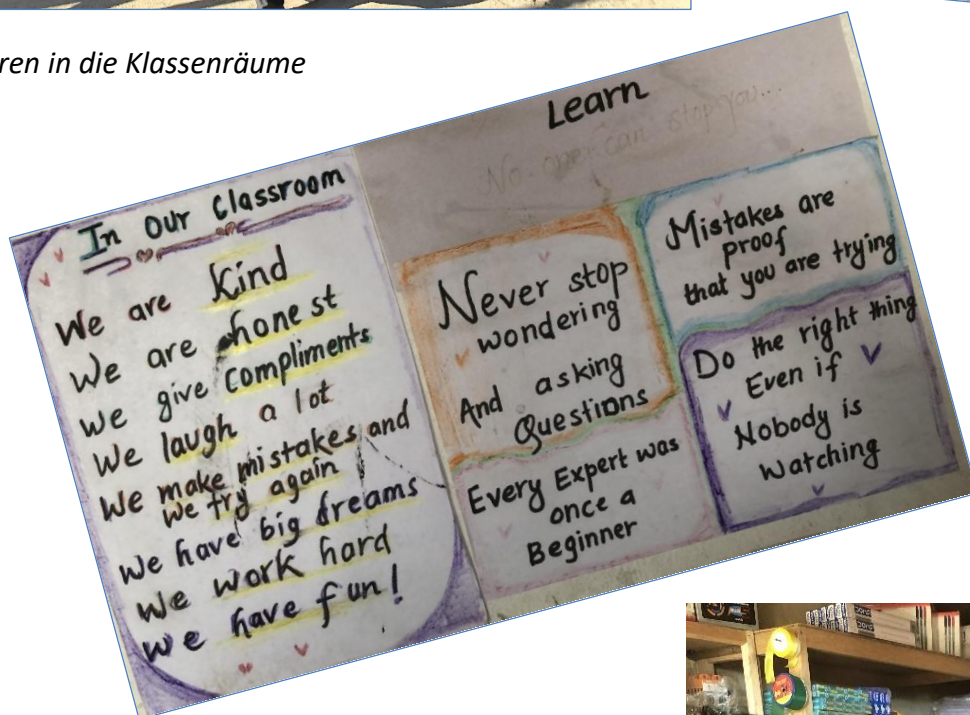 ren in die Klassenräume
In Our Classroom
We are Kind
We are honest
We give compliments
We laugh a lot
We make mistakes and
we try again
We have big dreams
We work hard
We have fun!
Learn
No one can stop you...
Never stop
wondering
And asking
Questions
Every Expert was
once a
Beginner
Mistakes are
proof
that you are trying
Do the right thing
Even if
Nobody is
Watching